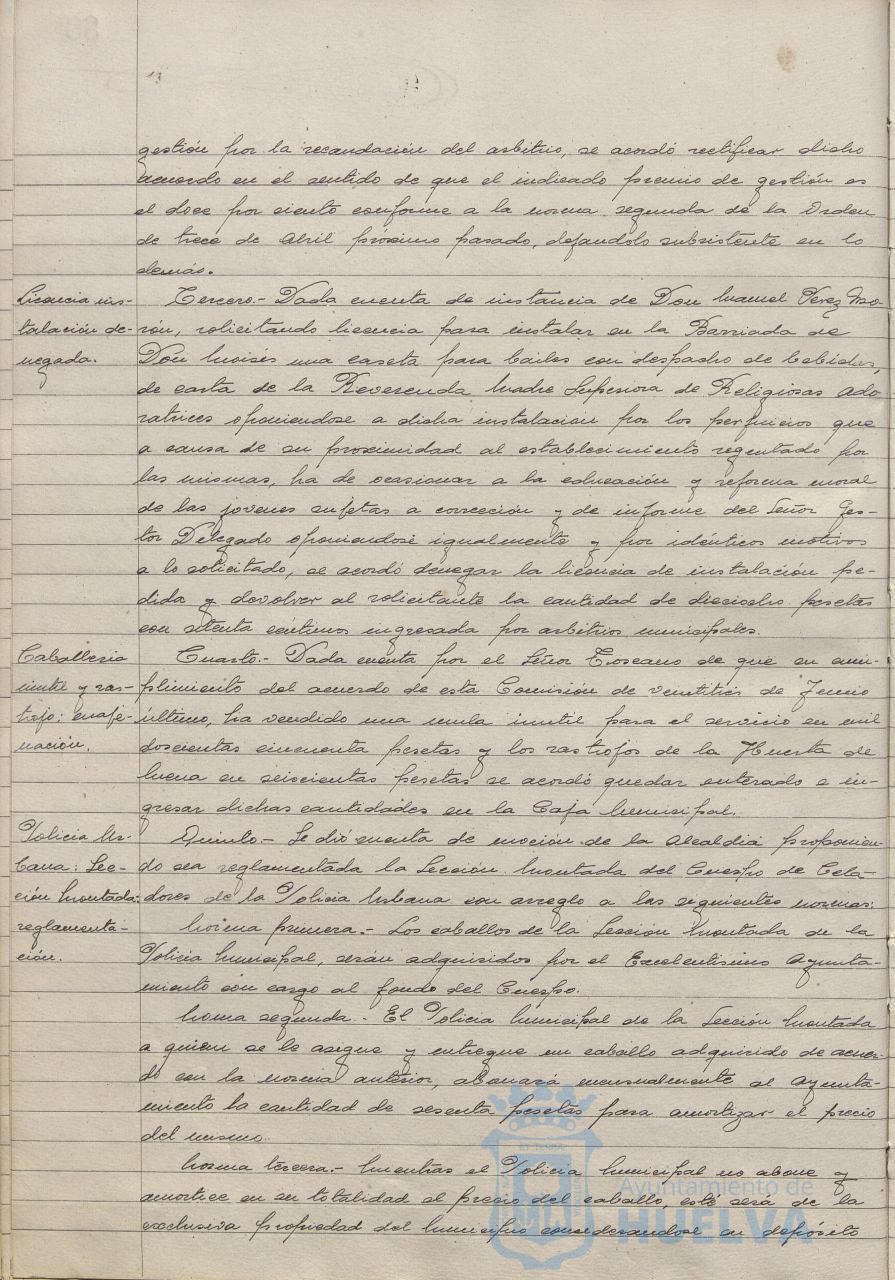 gestión por la recaudación del arbitrio, se acordó rectificar dicho
acuerdo en el sentido de que el indicado premio de gestión es
el doce por ciento conforme a la norma segunda de la Orden
de trece de Abril próximo pasado, dejandolo subsistente en lo
demás.
Licencia ins-
talación de-
negada.
Tercero.- Dada cuenta de instancia de Don Manuel Perez Mo-
rón, solicitando licencia para instalar en la Barriada de
Don Moisés una caseta para bailes con despacho de bebidas,
de carta de la Reverenda Madre Superiora de Religiosas Ado
ratrices oponiendose a dicha instalación por los perjuicios que
a causa de su proximidad al establecimiento regentado por
las mismas, ha de ocasionar a la educación y reforma moral
de las jovenes sujetas a corrección y de informe del Señor Ges-
tor Delegado oponiendose igualmente y por idénticos motivos
a lo solicitado, se acordó denegar la licencia de instalación pe-
dida y devolver al solicitante la cantidad de dieciocho pesetas
con setenta centimos ingresada por arbitrios municipales.
Caballeria
inutil y ras-
trojo: enaje-
nación.
Cuarto.- Dada cuenta por el Señor Toscano de que en cum-
plimiento del acuerdo de esta Comisión de ventitrés de Junio
último, ha vendido una mula inutil para el servicio en mil
doscientas cincuenta pesetas y los rastrojos de la Huerta de
Mena en seiscientas pesetas se acordó quedar enterado e in-
gresar dichas cantidades en la Caja Municipal.
Policia Ur-
bana: Sec-
ción Montada:
reglamenta-
ción.
Quinto.- Se dió cuenta de moción de la Alcaldia proponien-
do sea reglamentada la Sección Montada del Cuerpo de Cela-
dores de la Policia Urbana con arreglo a las siguientes normas:
Norma primera.- Los caballos de la Sección Montada de la
Policia Municipal, serán adquiridos por el Excelentisimo Ayunta-
miento con cargo al fondo del Cuerpo.
Norma segunda.- El Policia Municipal de la Sección Montada
a quien se le asigne y entregue un caballo adquirido de acuer-
do con la norma anterior, abonará mensualmente al Ayunta-
miento la cantidad de sesenta pesetas para amortizar el precio
del mismo.
Norma tercera.- Mientras el Policia Municipal no abone y
amortice en su totalidad el precio del caballo, esté será de la
exclusiva propiedad del Municipio considerandose en depósito
Ayuntamiento de
HUELVA